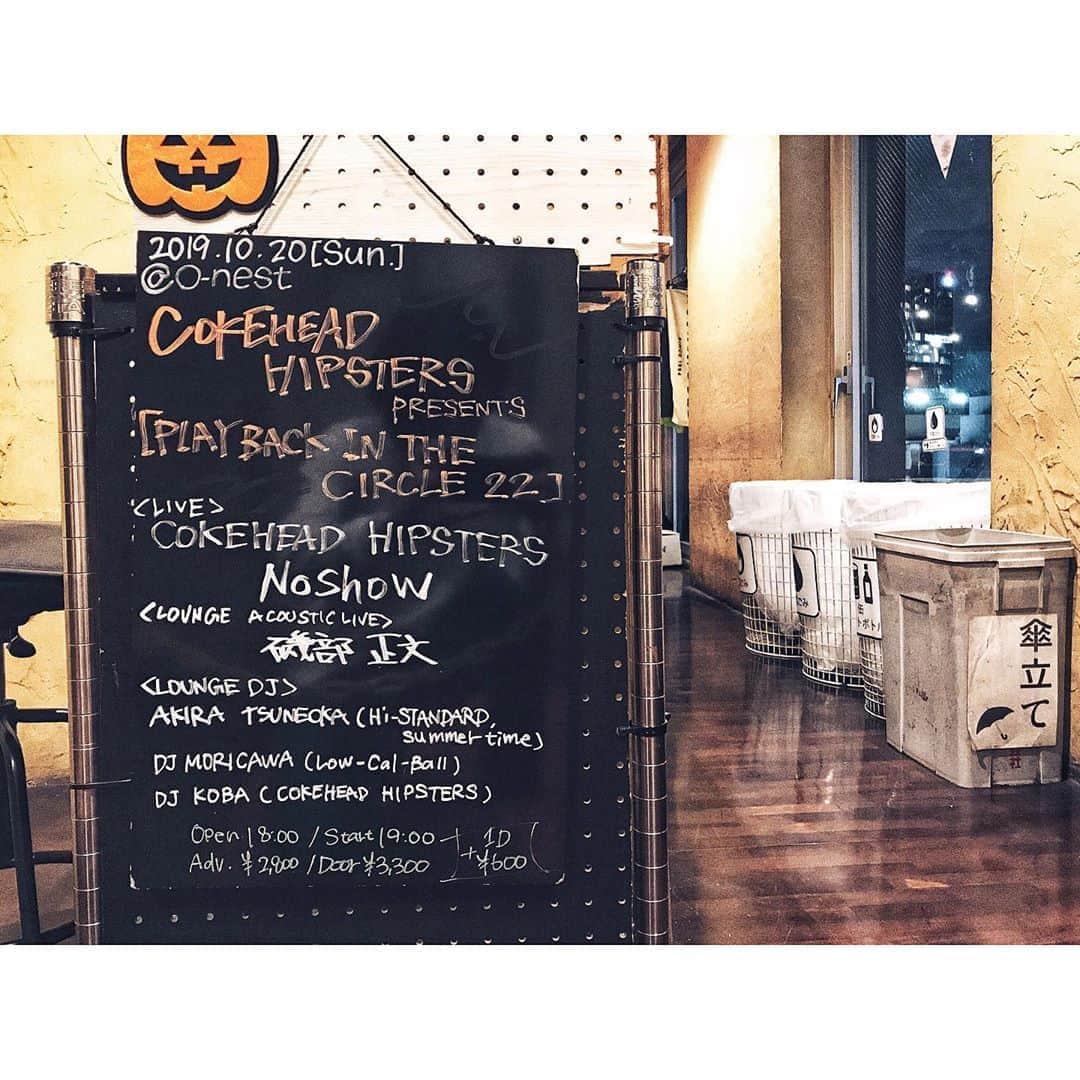 2019.10.20[Sun.]
@O-nest
COKEHEAD
HIPSTERS
PRESENTS
[PLAYBACK IN THE
CIRCLE 22]
<LIVE>
COKEHEAD HIPSTERS
NoShow
<LOUNGE ACOUSTIC LIVE>
磯部 正文
<LOUNGE DJ>
AKIRA TSUNEOKA (Hi-STANDARD,
summertime)
DJ MORICAWA (Low-Cal-Ball)
DJ KOBA (COKEHEAD HIPSTERS)
Open 18:00 / Start 19:00
Adv. ¥2,900 / Door ¥3,300
+ 1D
¥600
ごみ
缶
傘立て
社